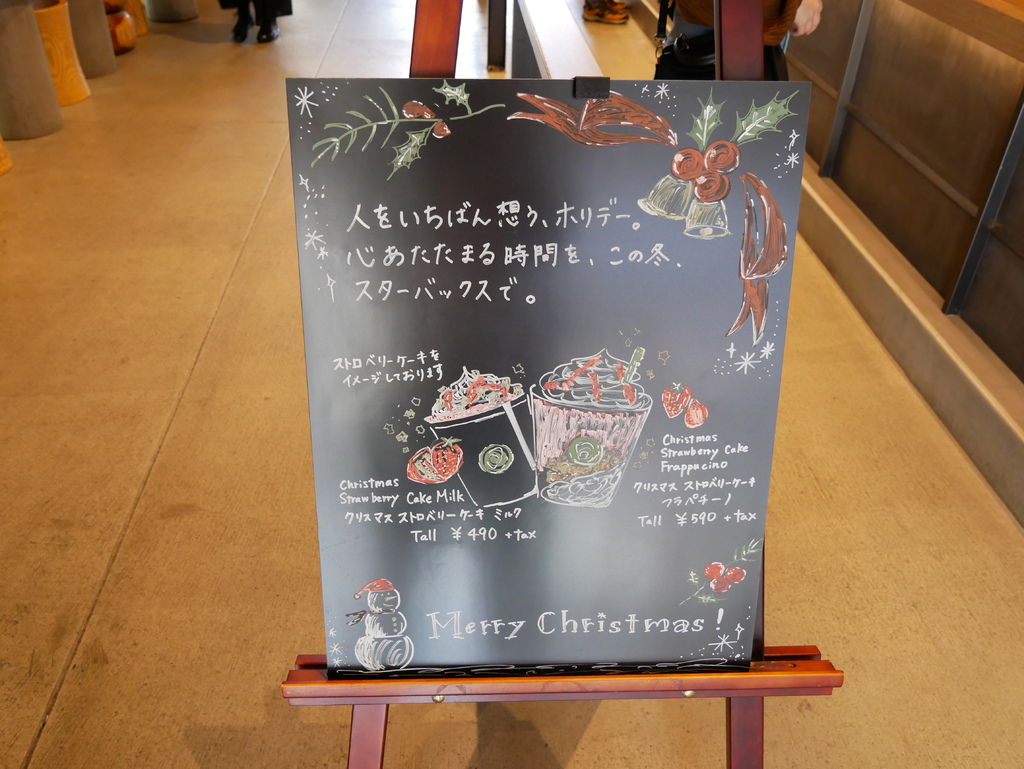 人をいちばん想う、ホリデー。
心あたたまる時間を、この冬、
スターバックスで。
ストロベリーケーキを
イメージしております
Christmas
Strawberry Cake Milk
クリスマス ストロベリーケーキ ミルク
Tall ¥490 +tax
Christmas
Strawberry Cake
Frappucino
クリスマス ストロベリーケーキ
フラペチーノ
Tall ¥590 +tax
Merry Christmas!